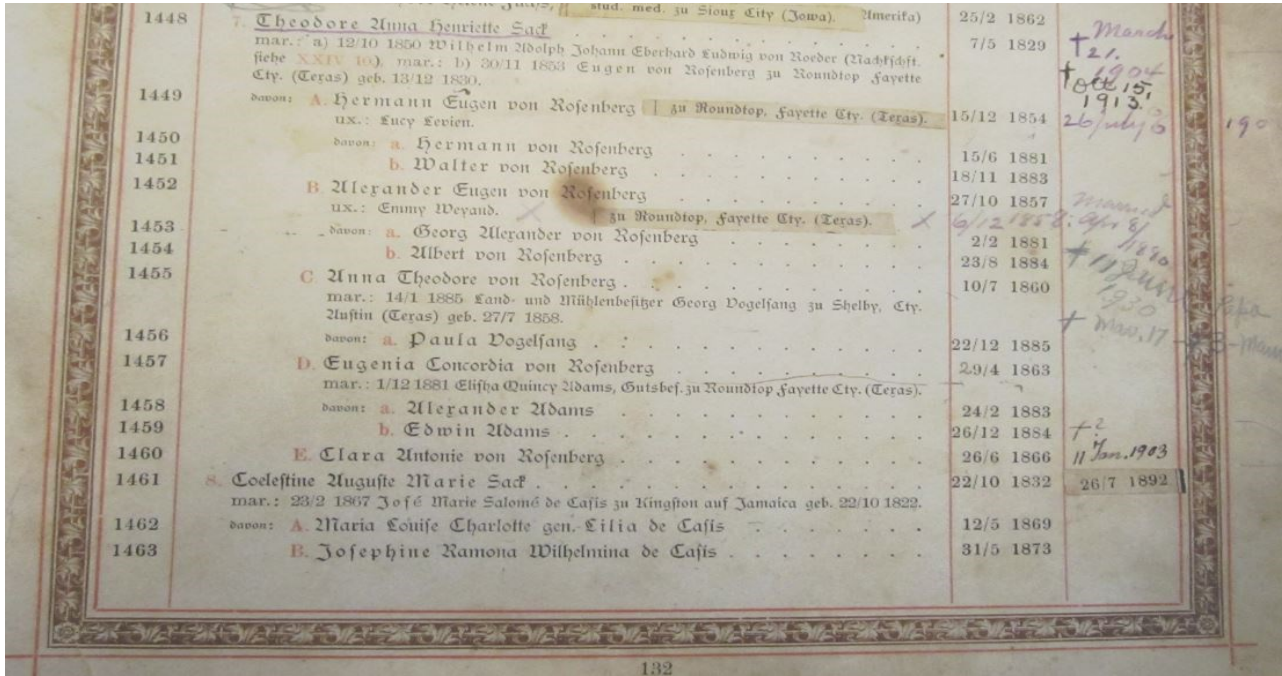 stud. med. zu Sioux City (Jowa). Amerika) 25/2 1862
1448 7. Theodore Anna Henriette Sack 7/5 1829 † March 21. 1904
mar.: a) 12/10 1850 Wilhelm Adolph Johann Eberhard Ludwig von Roeder (Nachkschft.
siehe XXIV 10). mar.: b) 30/11 1853 Eugen von Rosenberg zu Roundtop Fayette
Cty. (Texas) geb. 13/12 1830. † Oct 15, 1913.
1449 davon: A. Hermann Eugen von Rosenberg zu Roundtop, Fayette Cty. (Texas). 15/12 1854
ux.: Lucy Levien.
1450 davon: a. Hermann von Rosenberg 15/6 1881
1451 b. Walter von Rosenberg 18/11 1883
1452 B. Alexander Eugen von Rosenberg 27/10 1857
ux.: Emmy Weyand. × zu Roundtop, Fayette Cty. (Texas). × 6/12 1858. married Apr 8/ 1880
1453 davon: a. Georg Alexander von Rosenberg 2/2 1881
1454 b. Albert von Rosenberg 23/8 1884
1455 C Anna Theodore von Rosenberg 10/7 1860 † 1930 Papa
mar.: 14/1 1885 Land- und Mühlenbesitzer Georg Vogelsang zu Shelby, Cty.
Austin (Texas) geb. 27/7 1858. † Nov. 17
1456 davon: a. Paula Vogelsang 22/12 1885
1457 D. Eugenia Concordia von Rosenberg 29/4 1863
mar.: 1/12 1881 Elisha Quincy Adams, Gutsbes. zu Roundtop Fayette Cty. (Texas).
1458 davon: a. Alexander Adams 24/2 1883
1459 b. Edwin Adams 26/12 1884 † ?
1460 E. Clara Antonie von Rosenberg 26/6 1866 11 Jan. 1903
1461 8. Coelestine Auguste Marie Sack 22/10 1832 26/7 1892
mar.: 23/2 1867 José Marie Salomé de Casis zu Kingston auf Jamaica geb. 22/10 1822.
1462 davon: A. Maria Louise Charlotte gen. Cilia de Casis 12/5 1869
1463 B. Josephine Ramona Wilhelmina de Casis 31/5 1873
132